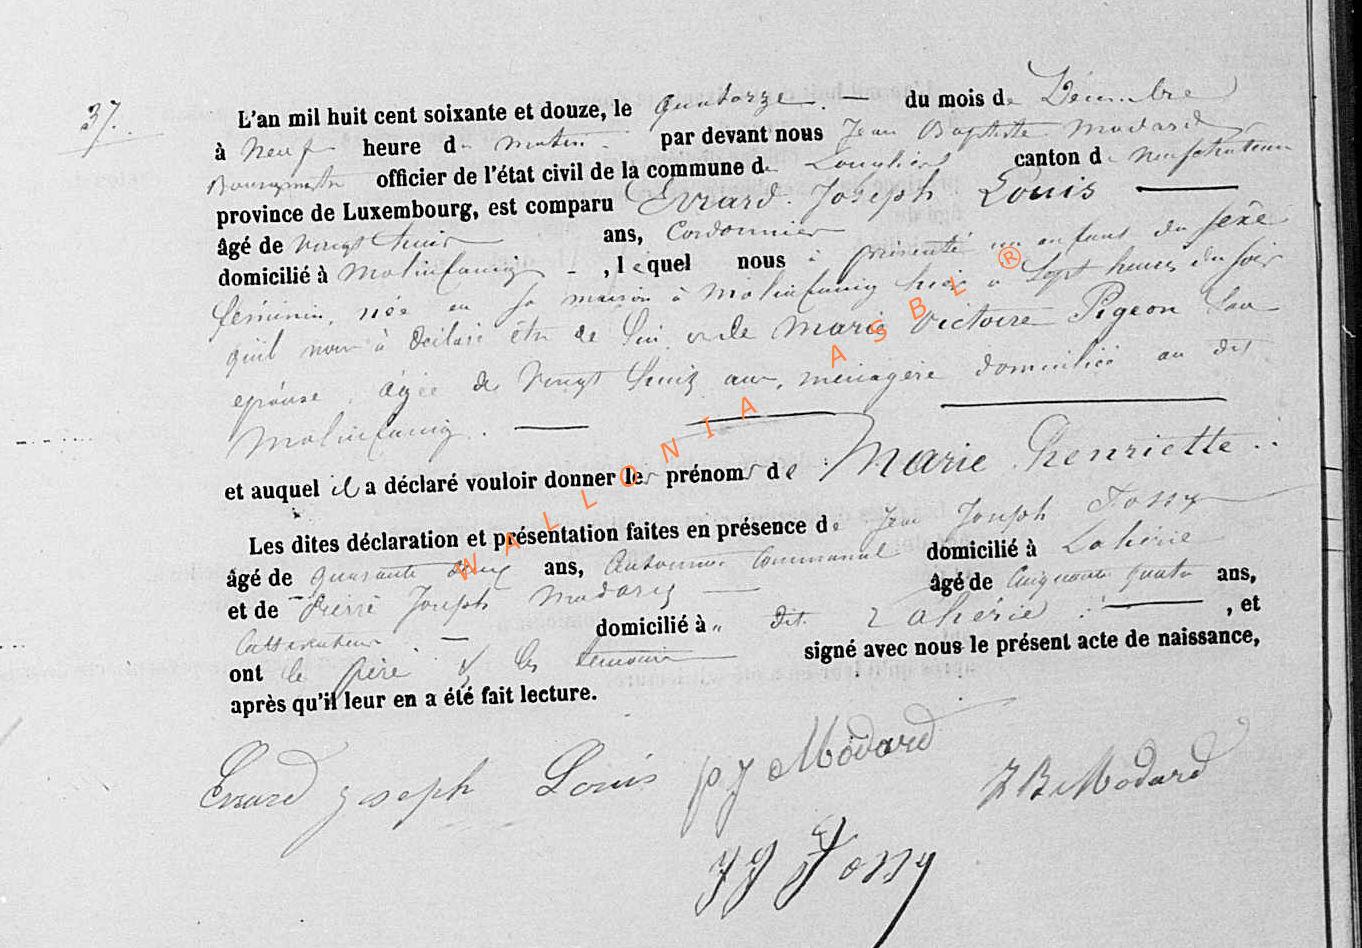 37.
L'an mil huit cent soixante et douze, le quatorze du mois de Décembre
à neuf heure du matin par devant nous Jean Baptiste Modard
Bourgmestre officier de l'état civil de la commune de Longlier canton de neufchateau
province de Luxembourg, est comparu Evrard Joseph Louis
âgé de vingt huit ans, Cordonnier
domicilié à Molinfaing, lequel nous a présenté un enfant du sexe
féminin, née en sa maison à Molinfaing hier à sept heures du soir
qu'il nous à déclaré être de lui et de Marie Victoire Pigeon sa
épouse, agée de vingt huit ans, menagère domiciliée au dit
Molinfaing.
et auquel il a déclaré vouloir donner les prénoms de Marie henriette
Les dites déclaration et présentation faites en présence de Jean Joseph Fossy
âgé de quarante ans, Communal domicilié à Lahérie
et de Pierre Joseph Modard âgé de Cinquante quatre ans,
Cultivateur domicilié à dit Lahérie, et
ont le père & les temoins signé avec nous le présent acte de naissance,
après qu'il leur en a été fait lecture.
Evrard Joseph Louis
p J Modard
J B Modard
J J Fossy
WALLONIA ASBL ®